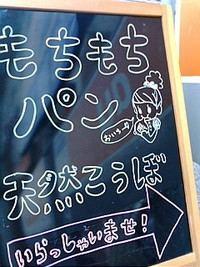 もちもち
パン
おいち〜♡
天然こうぼ
いらっしゃいませ!